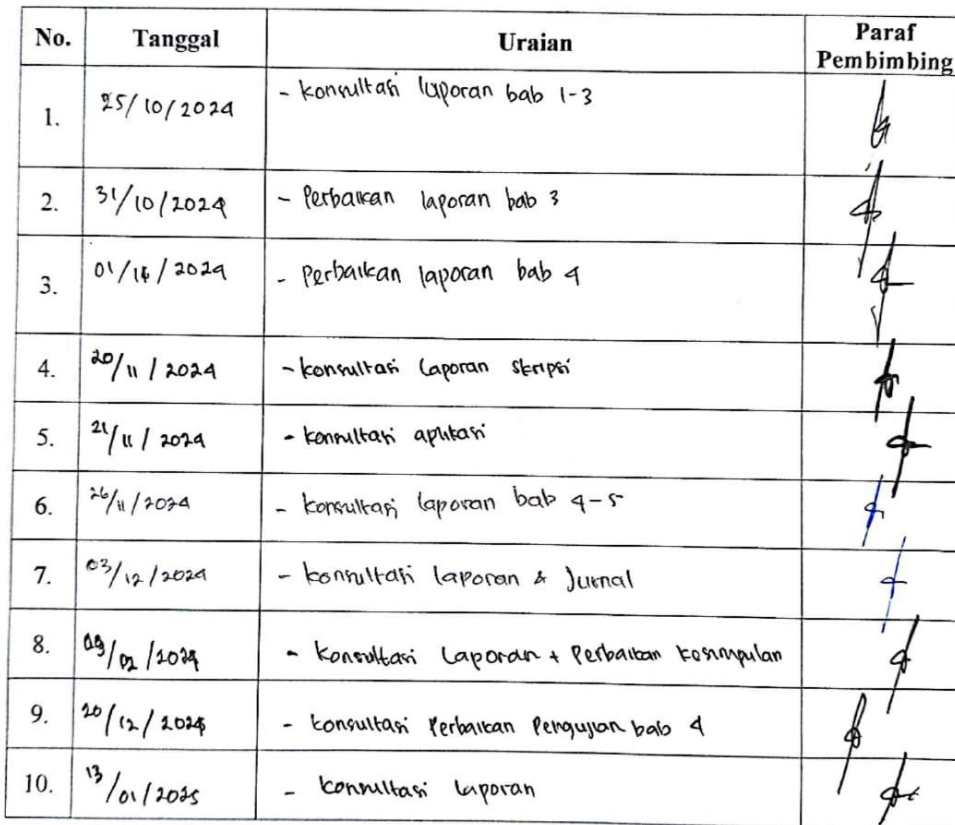 No. Tanggal Uraian Paraf Pembimbing
1. 25/10/2024 - konsultasi laporan bab 1-3
2. 31/10/2024 - Perbaikan laporan bab 3
3. 2024 - Perbaikan laporan bab 4
4. 20/11/2024 - konsultasi laporan skripsi
5. 21/11/2024 - konsultasi aplikasi
6. 26/11/2024 - konsultasi laporan bab 4-5
7. 03/12/2024 - konsultasi laporan & Jurnal
8. - konsultasi laporan + Perbaikan kesimpulan
9. 20/12/2024 - konsultasi Perbaikan Pengujian bab 4
10. 13/01/2025 - konsultasi laporan